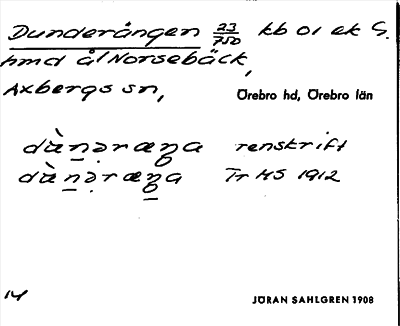 Dunderängen 23/750 kb 01 ek S.
hmd ål Norsebäck,
Axbergs sn, Örebro hd, Örebro län
dànəræŋa renskrift
dànəræŋa Tr HS 1912
14 JÖRAN SAHLGREN 1908